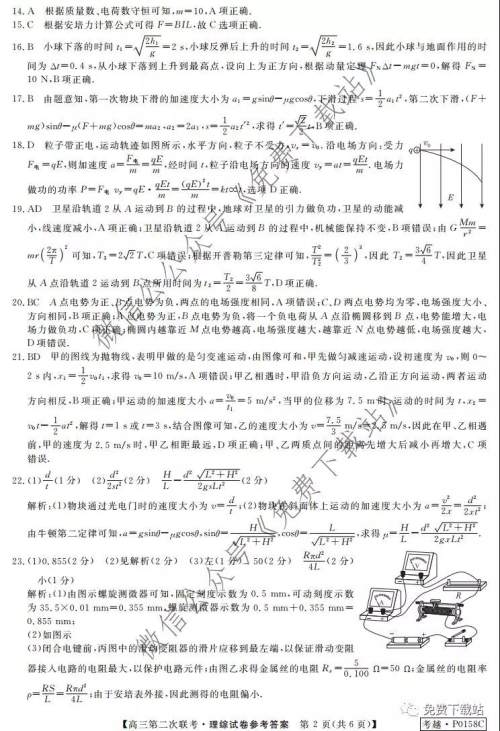 14. A 根据质量数、电荷数守恒可知,m=10,A项正确.
15. C 根据安培力计算公式可得 F=BIL,故 C 选项正确.
16. B 小球下落的时间 t₁=√(2h₁/g)=2 s,小球反弹后上升的时间 t₂=√(2h₂/g)=1.6 s,因此小球与地面作用的时
间为 Δt=0.4 s,从小球下落到上升到最高点,设向上为正方向,根据动量定理 F_NΔt−mgt=0,解得 F_N=
10 N,B项正确.
17. B 由题意知,第一次物块下滑的加速度大小为 a₁=gsinθ−μgcosθ,下滑过程 s=1/2 a₁t²,第二次下滑,(F+
mg)sinθ−μ(F+mg)cosθ=ma₂,a₂=2a₁,s=1/2 a₂t′²,求得 t′=√2/2 t,B项正确.
18. D 粒子带正电,运动轨迹如图所示,水平方向,粒子不受力,vₓ=v₀,沿电场方向:受力
F电=qE,则加速度 a=F电/m=qE/m,经时间 t,粒子沿电场方向的速度 v_y=at=qEt/m,电场力
做功的功率 P=F电 v_y=qE·qEt/m=(qE)²t/m=kt∝t,选项 D 正确.
q v₀
E
19. AD 卫星沿轨道 2 从 A 运动到 B 的过程中,地球对卫星的引力做负功,卫星的动能减
小,线速度减小,A 项正确;卫星沿轨道 2 从 A 运动到 B 的过程中,机械能保持不变,B项错误;由 G Mm/r²=
mr(2π/T)² 可知,T₃=2√2T,C项错误;根据开普勒第三定律可知,T²/T₂²=(2/3)³,因此 T₂=3√6/4 T,因此卫星
从 A 点沿轨道 2 运动到 B 点所用时间为 t₂=T₂/2=3√6/8 T,D项正确.
20. BC A 点电势为正、B 点电势为负,两点的电场强度相同,A 项错误;C、D 两点电势均为零,电场强度大小、
方向相同,B项正确;A 点电势为正,B 点电势为负,将一个负电荷从 A 点沿椭圆移到 B 点,电势能增大,电
场力做负功,C 项正确;椭圆内越靠近 M 点电势越高,电场强度越大,越靠近 N 点电势越低,电场强度越大,
D 项错误.
21. BD 甲的图线为抛物线,表明甲做的是匀变速运动,由图像可知,甲先做匀减速运动,设初速度为 v₀,则 0～
2 s内,x₁=1/2 v₀t₁,求得 v₀=10 m/s,A项错误;甲乙相遇时,甲沿负方向运动,乙沿正方向运动,两者运动
方向相反,B项正确;甲运动的加速度大小 a=v₀/t₁=5 m/s²,当甲的位移为 7.5 m时,运动的时间为 t,x₂=
v₀t−1/2 at²,解得 t=1 s或 t=3 s,结合图像可知,乙的速度大小为 v=7.5/3 m/s=2.5 m/s,因此在甲、乙相遇
前,甲的速度为 2.5 m/s时,甲乙相距最远,D 项正确;甲、乙两质点间的距离先增大后减小再增大,C 项
错误.
22. (1) d/t(1分) (2) d²/2st²(2分) H/L−d²√(L²+H²)/2gsLt²(2分)
解析:(1)物块通过光电门时的速度大小为 v=d/t;(2)物块在斜面体上运动的加速度大小为 a=v²/2x=d²/2xt²;
由牛顿第二定律可知,a=gsinθ−μgcosθ,sinθ=H/√(L²+H²),cosθ=L/√(L²+H²),求得 μ=H/L−d²√(L²+H²)/2gxLt².
23. (1)0.855(2分) (2)见解析(2分) (3)左(1分) 50(2分) Rπd²/4L(2分)
小(1分)
解析:(1)由图示螺旋测微器可知,固定刻度示数为 0.5 mm,可动刻度示数
为 35.5×0.01 mm=0.355 mm,螺旋测微器示数为 0.5 mm+0.355 mm=
0.855 mm;
(2)如图示
(3)闭合电键前,丙图中的滑动变阻器的滑片应移到最左端,以保证滑动变阻
器接入电路的电阻最大,以保护电路元件;由图乙求得金属丝的电阻 Rₓ=5/0.100 Ω=50 Ω;金属丝的电阻率
ρ=RS/L=Rπd²/4L;由于安培表外接,因此测得的电阻偏小.
V
A
R
微信公众号《免费下载站》
微信公众号《免费下载站》
免费下载站
高三第二次联考·理综试卷参考答案 第 2 页(共 6 页)
考越·P0158C